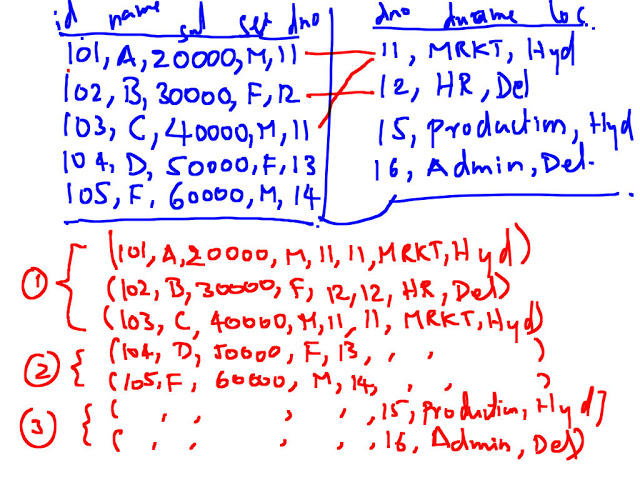 id name sal sex dno
101, A, 20000, M, 11
102, B, 30000, F, 12
103, C, 40000, M, 11
104, D, 50000, F, 13
105, F, 60000, M, 14
dno dname loc
11, MRKT, Hyd
12, HR, Del
15, production, Hyd
16, Admin, Del.
① (101, A, 20000, M, 11, 11, MRKT, Hyd)
(102, B, 30000, F, 12, 12, HR, Del)
(103, C, 40000, M, 11, 11, MRKT, Hyd)
② (104, D, 50000, F, 13, , , )
(105, F, 60000, M, 14, , , )
③ ( , , , , , 15, production, Hyd)
( , , , , , 16, Admin, Del)